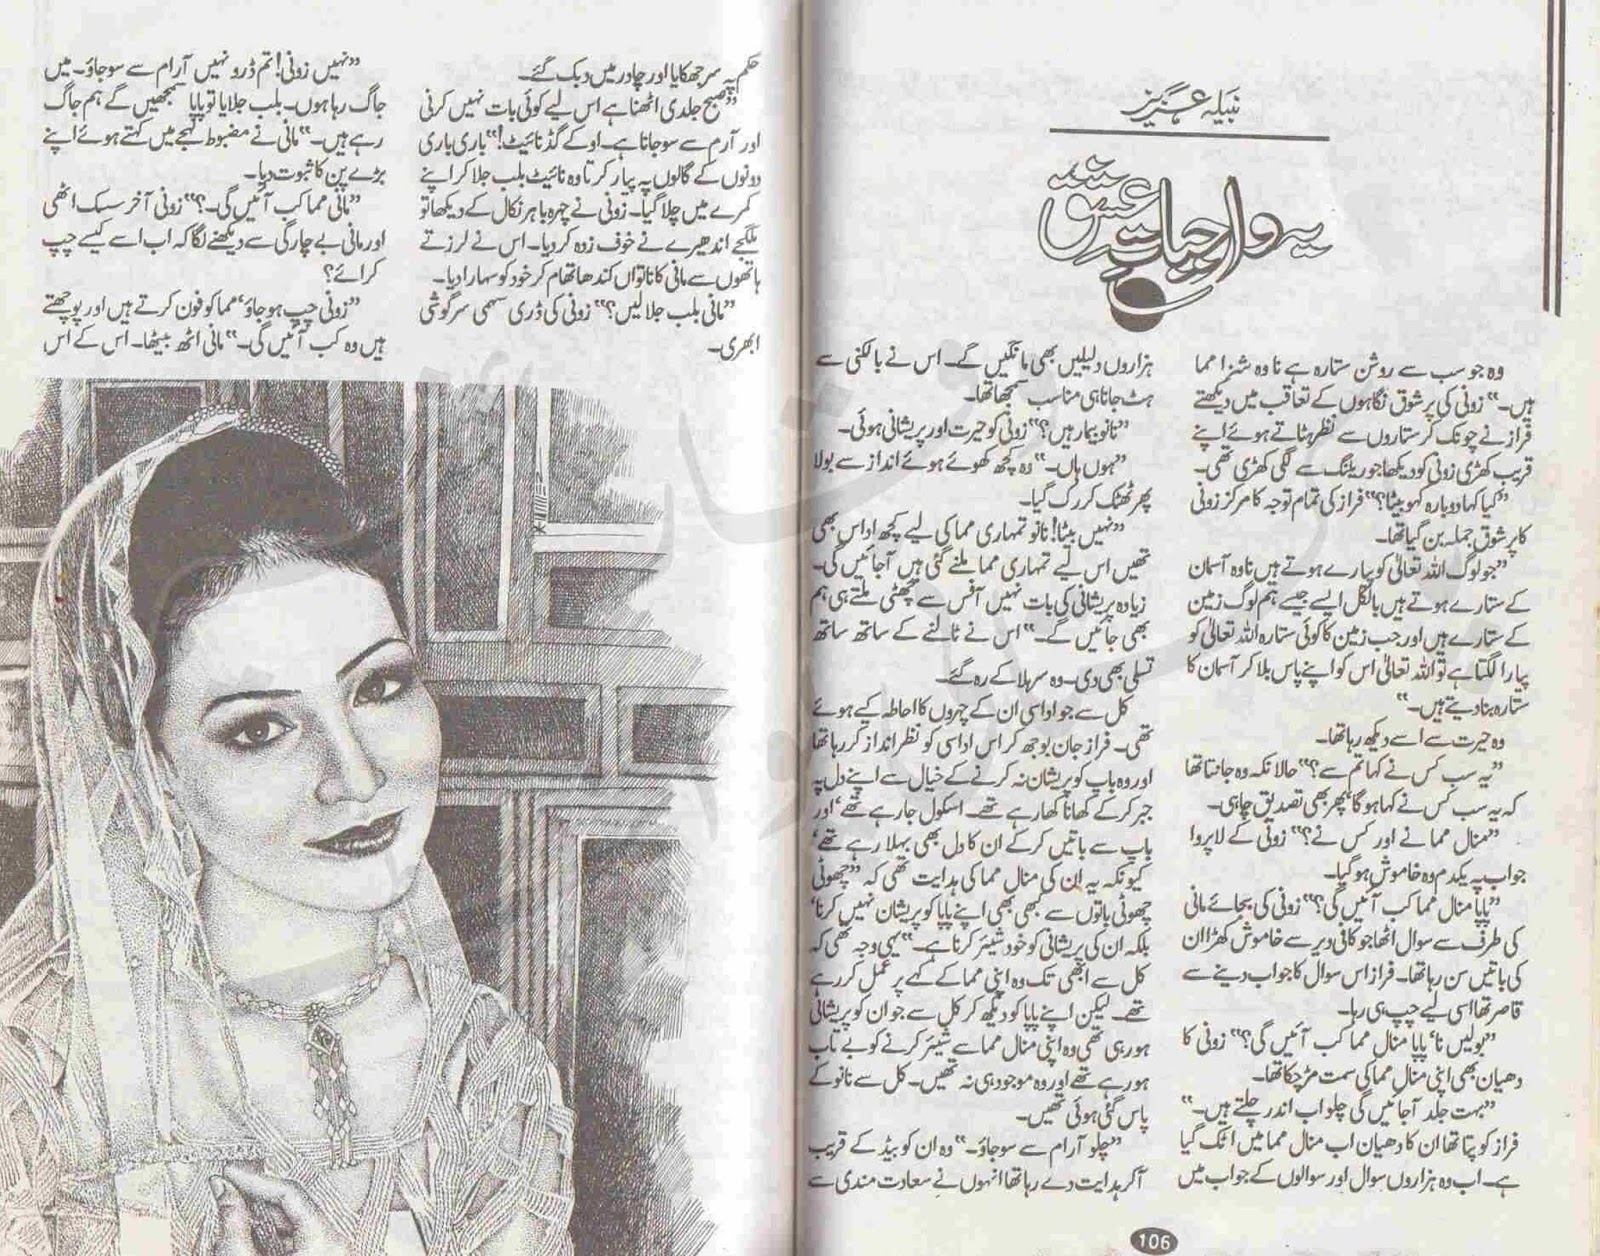 نبیلہ عزیز
یہ وار حیات عشق
وہ جو سب سے روشن ستارہ ہے نا وہ شنزا مما
ہیں۔“ زونی کی پرشوق نگاہوں کے تعاقب میں دیکھتے
فراز نے چونک کر ستاروں سے نظر ہٹاتے ہوئے اپنے
قریب کھڑی زونی کو دیکھا جو ریلنگ سے لگی کھڑی تھی۔
”کیا کہا دوبارہ کہو بیٹا؟“ فراز کی تمام توجہ کا مرکز زونی
کا پرشوق جملہ بن گیا تھا۔
”جو لوگ اللہ تعالیٰ کو پیارے ہوتے ہیں نا وہ آسمان
کے ستارے ہوتے ہیں بالکل ایسے جیسے ہم لوگ زمین
کے ستارے ہیں اور جب زمین کا کوئی ستارہ اللہ تعالیٰ کو
پیارا لگتا ہے تو اللہ تعالیٰ اس کو اپنے پاس بلا کر آسمان کا
ستارہ بنا دیتے ہیں۔“
وہ حیرت سے اسے دیکھ رہا تھا۔
”یہ سب کس نے کہا تم سے؟“ حالانکہ وہ جانتا تھا
کہ یہ سب کس نے کہا ہوگا‘ پھر بھی تصدیق چاہی۔
”منال مما نے اور کس نے؟“ زونی کے لاپروا
جواب پہ یکدم وہ خاموش ہو گیا۔
”پاپا منال مما کب آئیں گی؟“ زونی کی بجائے مانی
کی طرف سے سوال اٹھا جو کافی دیر سے خاموش کھڑا ان
کی باتیں سن رہا تھا۔ فراز اس سوال کا جواب دینے سے
قاصر تھا اسی لیے چپ ہی رہا۔
”بولیں نا‘ پاپا منال مما کب آئیں گی؟“ زونی کا
دھیان بھی اپنی منال مما کی سمت مڑ چکا تھا۔
”بہت جلد آ جائیں گی چلو اب اندر چلتے ہیں۔“
فراز کو پتا تھا ان کا دھیان اب منال مما میں اٹک گیا
ہے۔ اب وہ ہزاروں سوال اور سوالوں کے جواب میں
ہزاروں دلیلیں بھی مانگیں گے۔ اس نے بالکنی سے
ہٹ جانا ہی مناسب سمجھا تھا۔
”نانو بیمار ہیں؟“ زونی کو حیرت اور پریشانی ہوئی۔
”ہوں ہاں۔“ وہ کچھ کھوئے ہوئے انداز سے بولا
پھر ٹھٹک کر رک گیا۔
”نہیں بیٹا! نانو تمہاری مما کی لیے کچھ اداس بھی
تھیں اس لیے تمہاری مما ملنے گئی ہیں آجائیں گی۔
زیادہ پریشانی کی بات نہیں آفس سے چھٹی ملتے ہی ہم
بھی جائیں گے۔“ اس نے ٹالنے کے ساتھ ساتھ
تسلی بھی دی۔ وہ سر ہلا کے رہ گئے۔
کل سے جو اداسی ان کے چہروں کا احاطہ کیے ہوئے
تھی۔ فراز جان بوجھ کر اس اداسی کو نظر انداز کر رہا تھا
اور وہ باپ کو پریشان نہ کرنے کے خیال سے اپنے دل پہ
جبر کر کے کھانا کھا رہے تھے۔ اسکول جا رہے تھے‘ اور
باپ سے باتیں کر کے ان کا دل بھی بہلا رہے تھے‘
کیونکہ یہ ان کی منال مما کی ہدایت تھی کہ ”چھوٹی
چھوٹی باتوں سے کبھی بھی اپنے پاپا کو پریشان نہیں کرنا‘
بلکہ ان کی پریشانی کو خود شیئر کرنا ہے۔“ یہی وجہ تھی کہ
کل سے ابھی تک وہ اپنی مما کے کہے پر عمل کر رہے
تھے۔ لیکن اپنے پاپا کو دیکھ کر کل سے جو ان کو پریشانی
ہو رہی تھی وہ اپنی منال مما سے شیئر کرنے کو بے تاب
ہو رہے تھے اور وہ موجود ہی نہ تھیں۔ کل سے نانو کے
پاس گئی ہوئی تھیں۔
”چلو آرام سے سو جاؤ۔“ وہ ان کو بیڈ کے قریب
آکر ہدایت دے رہا تھا انہوں نے سعادت مندی سے
106
حکم پہ سر جھکایا اور چادر میں دبک گئے۔
”صبح جلدی اٹھنا ہے اس لیے کوئی بات نہیں کرنی
اور آرم سے سو جانا ہے۔ اوکے گڈ نائیٹ!“ باری باری
دونوں کے گالوں پہ پیار کرتا وہ نائیٹ بلب جلا کر اپنے
کمرے میں چلا گیا۔ زونی نے چہرہ باہر نکال کے دیکھا تو
ملگجے اندھیرے نے خوف زدہ کر دیا۔ اس نے لرزتے
ہاتھوں سے مانی کا ناتواں کندھا تھام کر خود کو سہارا دیا۔
”مانی بلب جلا لیں؟“ زونی کی ڈری سہمی سرگوشی
ابھری۔
”نہیں زونی! تم ڈرو نہیں آرام سے سو جاؤ۔ میں
جاگ رہا ہوں۔ بلب جلایا تو پاپا سمجھیں گے ہم جاگ
رہے ہیں۔“ مانی نے مضبوط لہجے میں کہتے ہوئے اپنے
بڑے پن کا ثبوت دیا۔
”مانی مما کب آئیں گی۔؟“ زونی آخر سسک اٹھی
اور مانی بے چارگی سے دیکھنے لگا کہ اب اسے کیسے چپ
کرائے؟
”زونی چپ ہو جاؤ‘ مما کو فون کرتے ہیں اور پوچھتے
ہیں وہ کب آئیں گی۔“ مانی اٹھ بیٹھا۔ اس کے اس